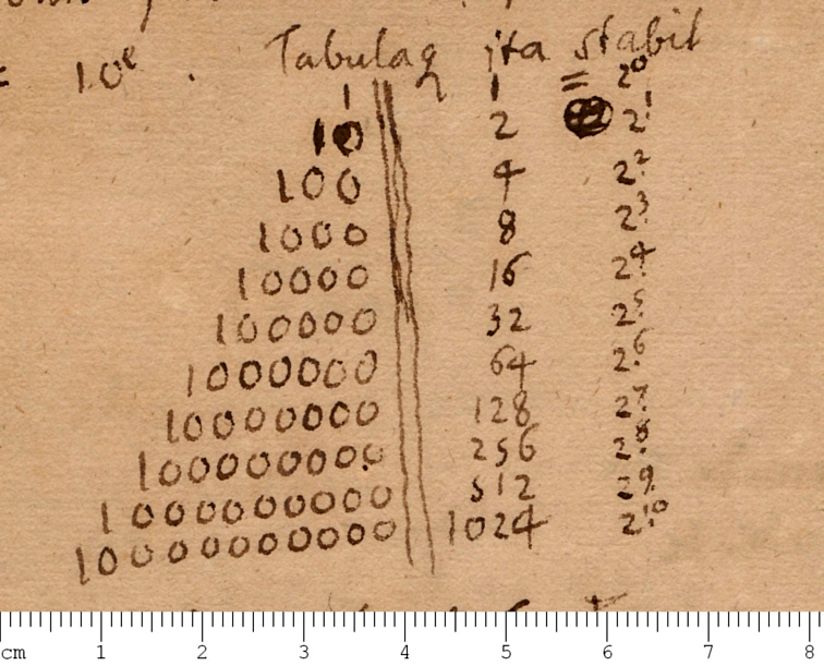 = 10^e . Tabulaq ita stabil
1 1 = 2^0
10 2 2^1.
100 4 2^2.
1000 8 2^3.
10000 16 2^4.
100000 32 2^5.
1000000 64 2^6.
10000000 128 2^7.
100000000 256 2^8.
1000000000 512 2^9.
10000000000 1024 2^10.
cm 1 2 3 4 5 6 7 8